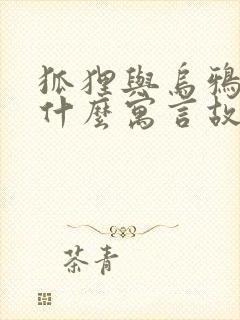 狐狸與烏鴉
什麼寓言故
茶青